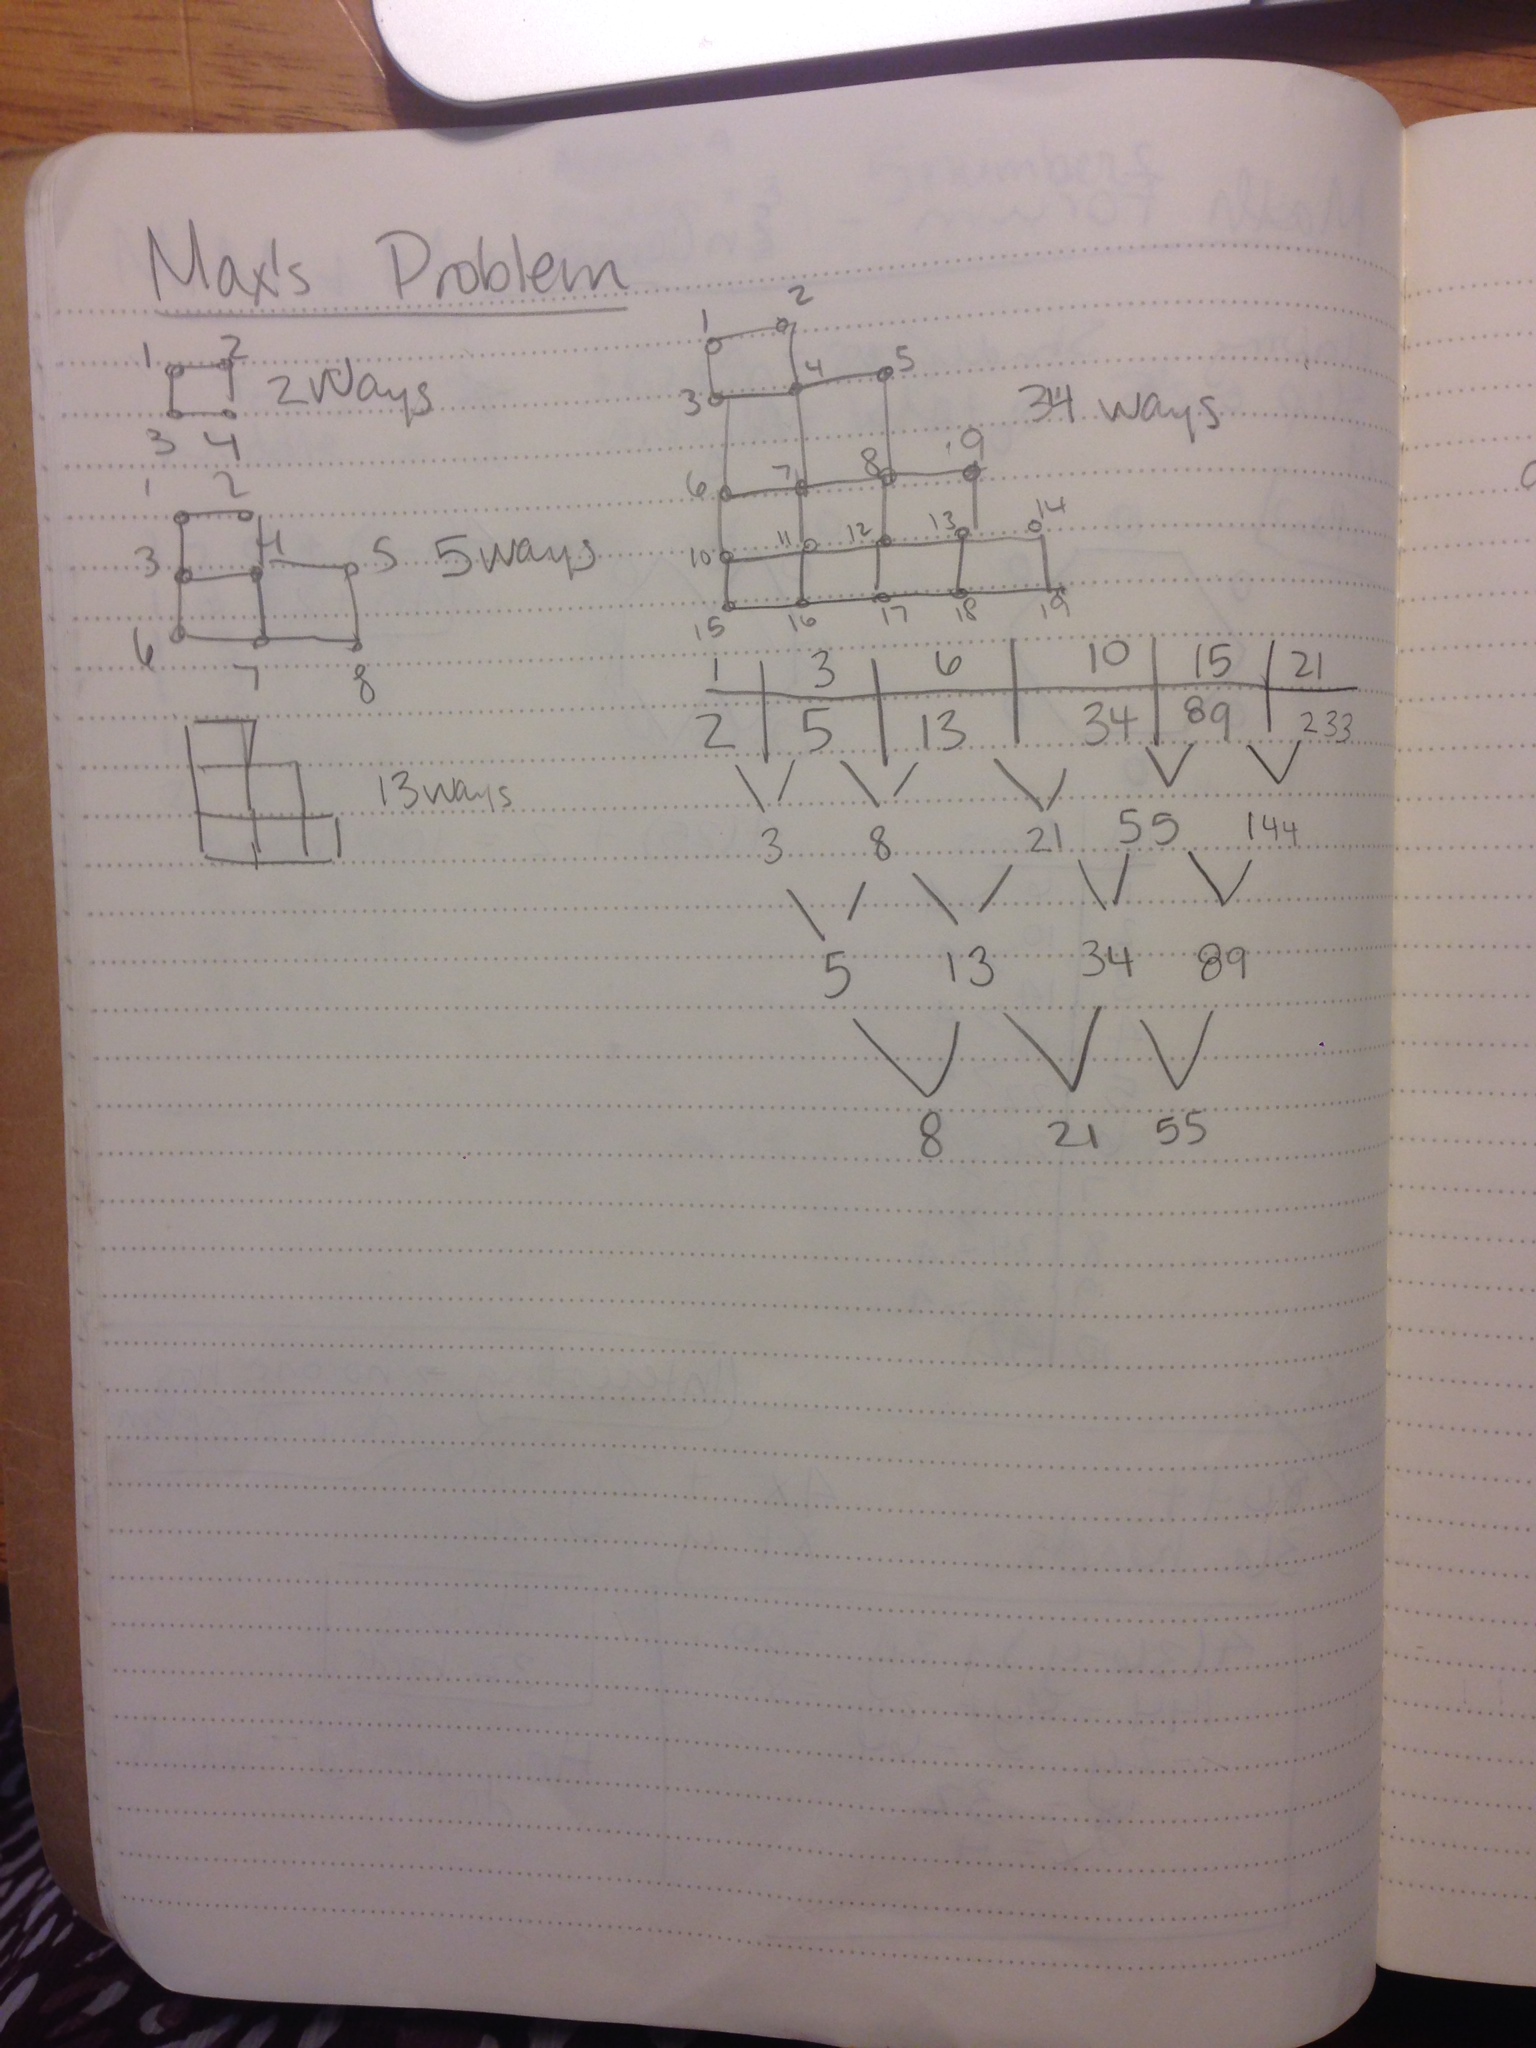 Max's Problem
1 2
3 4
2 Ways
1 2
3 4 5
6 7 8
5 ways
13 ways
1 2
3 4 5
6 7 8 9
10 11 12 13 14
15 16 17 18 19
34 ways
1 3 6 10 15 21
2 5 13 34 89 233
3 8 21 55 144
5 13 34 89
8 21 55